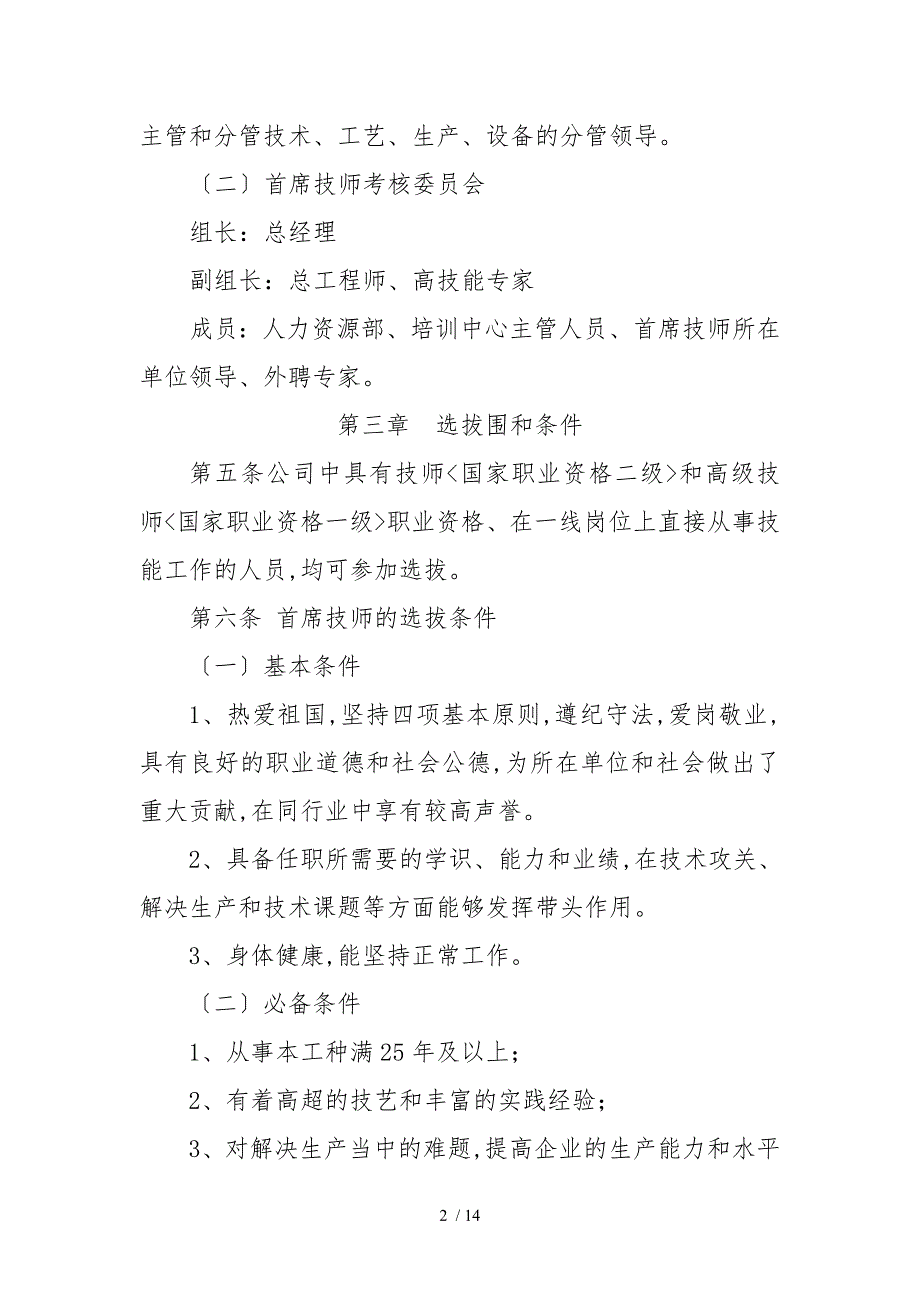 主管和分管技术、工艺、生产、设备的分管领导。
〔二〕首席技师考核委员会
组长：总经理
副组长：总工程师、高技能专家
成员：人力资源部、培训中心主管人员、首席技师所在
单位领导、外聘专家。
第三章　选拔围和条件
第五条公司中具有技师<国家职业资格二级>和高级技
师<国家职业资格一级>职业资格、在一线岗位上直接从事技
能工作的人员,均可参加选拔。
第六条 首席技师的选拔条件
〔一〕基本条件
1、热爱祖国,坚持四项基本原则,遵纪守法,爱岗敬业,
具有良好的职业道德和社会公德,为所在单位和社会做出了
重大贡献,在同行业中享有较高声誉。
2、具备任职所需要的学识、能力和业绩,在技术攻关、
解决生产和技术课题等方面能够发挥带头作用。
3、身体健康,能坚持正常工作。
〔二〕必备条件
1、从事本工种满 25 年及以上；
2、有着高超的技艺和丰富的实践经验；
3、对解决生产当中的难题,提高企业的生产能力和水平
2 / 14